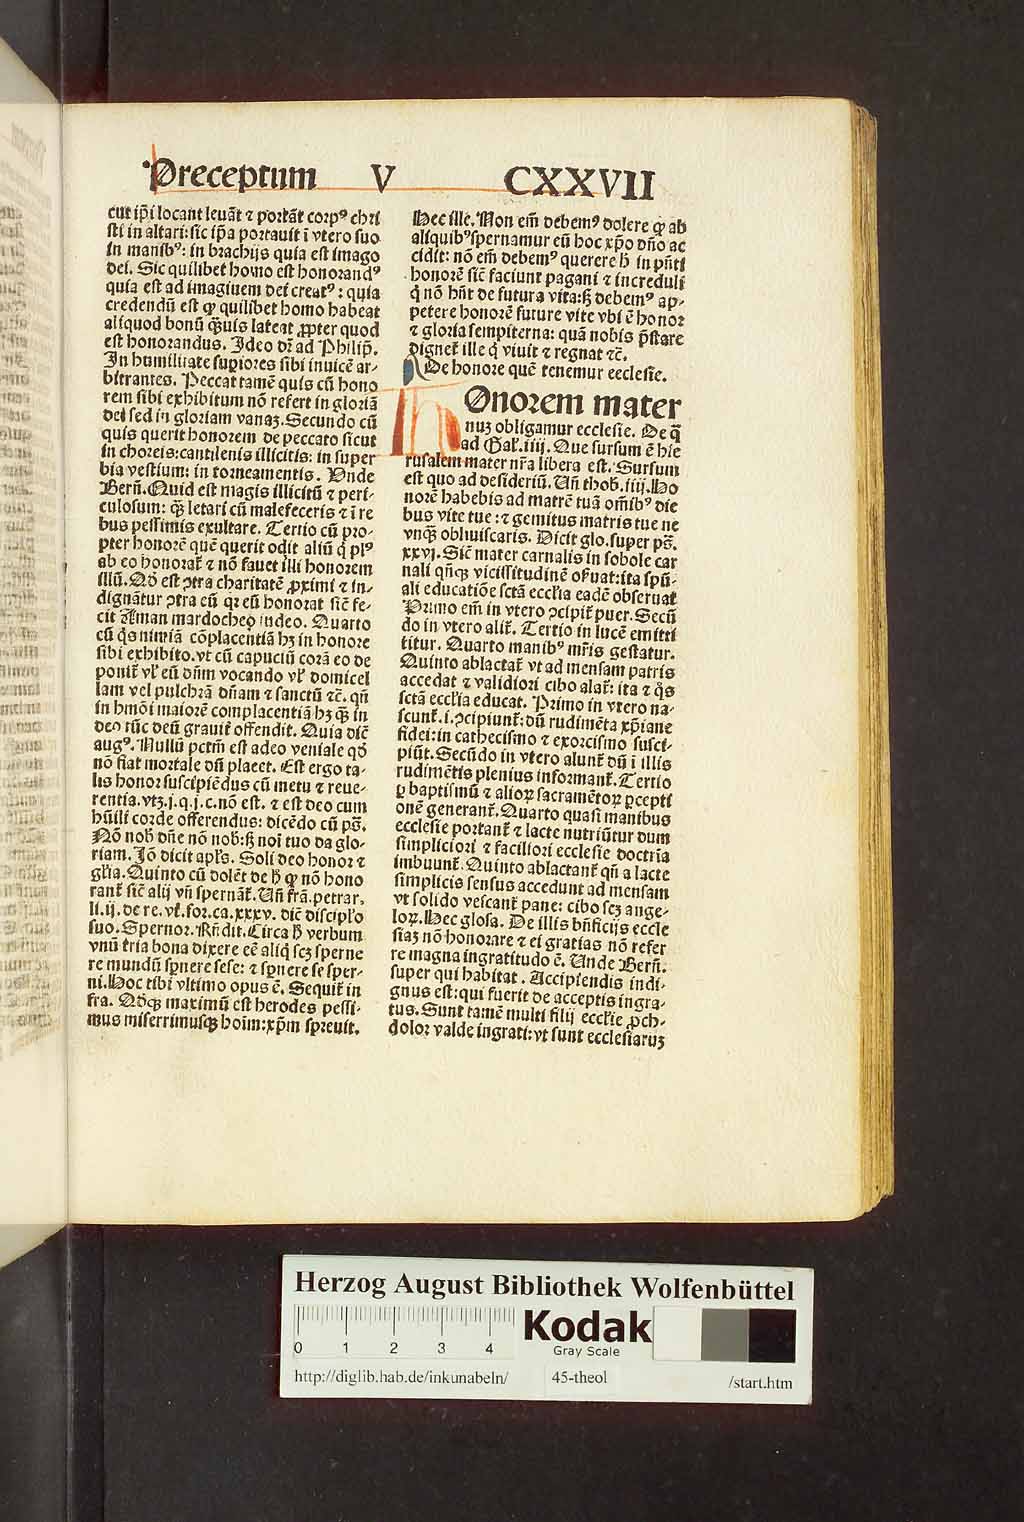 Preceptum V CXXVII
cut ip̄i locant leuāt ⁊ portāt corpꝰ chri
sti in altari: sic ip̄a portauit ī vtero suo
in manibꝰ: in brachijs quia est imago
dei. Sic quilibet homo est honorandꝰ
quia est ad imaginem dei creatꝰ: quia
credendū est ꝙ quilibet homo habeat
aliquod bonū q̄uis lateat ꝓpter quod
est honorandus. Ideo dr̄ ad Philip̄.
In humilitate supiores sibi inuicē ar-
bitrantes. Peccat tamē quis cū hono
rem sibi exhibitum nō refert in gloriā
dei sed in gloriam vanaꝫ. Secundo cū
quis querit honorem de peccato sicut
in choreis: cantilenis illicitis: in super
bia vestium: in torneamentis. Vnde
Bern̄. Quid est magis illicitū ⁊ peri-
culosum: q̄ꝫ letari cū malefeceris ⁊ ī re
bus pessimis exultare. Tertio cū pro-
pter honorē quē querit odit aliū q̇ plꝰ
ab eo honorat̄ ⁊ nō fauet illi honorem
illū. Qd̄ est ꝯtra charitatē ꝓximi ⁊ in-
dignātur ꝯtra eū qꝛ eū honorat sic̄ fe-
cit Aman mardocheo iudeo. Quarto
cū q̇s nimiā cōplacentiā hꝫ in honore
sibi exhibito. vt cū capuciū corā eo de
ponit̄ vl̓ eū dn̄m vocando vl̓ domicel
lam vel pulchrā dn̄am ⁊ sanctū ⁊c̄. qn̄
in hmōi maiorē complacentiā hꝫ q̄ꝫ in
deo tūc deū grauit̄ offendit. Quia dic̄
augꝰ. Nullū pctm̄ est adeo veniale qd̄
nō fiat mortale dū placet. Est ergo ta-
lis honor suscipiēdus cū metu ⁊ reue-
rentia. vtꝫ. j. q. j. c. nō est. ⁊ est deo cum
hūili corde offerendus: dicēdo cū ps̄.
Nō nob̄ dn̄e nō nob̄: ꝫ noī tuo da glo-
riam. Jō dicit apl̓s. Soli deo honor ⁊
gl̓ia. Quinto cū dolēt de h̄ ꝙ nō hono
rant̄ sic̄ alij vn̄ spernāt̄. Un̄ frā. petrar.
li. ij. de re. vt̄. for. ca. xxxv. dic̄ discipl̓o
suo. Spernor. Rn̄dit. Circa h̄ verbum
vnū tria bona dixere eē aliq̇ scꝫ sperne
re mundū sp̱nere sese: ⁊ sp̱nere se sper-
ni. Hoc tibi vltimo opus ē. Sequit̄ in
fra. Qd̄qꝫ maximū est herodes pessi-
mus miserrimusqꝫ hoīm: xp̄m spreuit.
Hec ille. Non em̄ debemꝰ dolere ꝙ ab
aliquibꝰ spernamur cū hoc xp̄o dn̄o ac
cidit: nō em̄ debemꝰ querere h̄ in pn̄ti
honorē sic̄ faciunt pagani ⁊ increduli
q̇ nō hn̄t de futura vita: ꝫ debemꝰ ap-
petere honorē future vite vbi ē honor
⁊ gloria sempiterna: quā nobis p̄stare
dignet̄ ille q̇ viuit ⁊ regnat ⁊c̄.
De honore quē tenemur ecclesie.
HOnorem mater
nuꝫ obligamur ecclesie. De q̄
ad Gal̓. iiij. Que sursum ē hie
rusalem mater nr̄a libera est. Sursum
est quo ad desideriū. Un̄ thob. iiij. Ho
norē habebis ad matrē tuā om̄ibꝰ die
bus vite tue: ⁊ gemitus matris tue ne
vnq̄ꝫ obliuiscaris. Dicit glo. super ps̄.
xxvj. Sic̄ mater carnalis in sobole car
nali qn̄qꝫ vicissitudinē obẜuat: ita spū-
ali educatiōe sctā eccl̓ia eadē obseruat
Primo em̄ in vtero ꝯcipit̄ puer. Secū
do in vtero alit̄. Tertio in lucē emitti
titur. Quarto manibꝰ mr̄is gestatur.
Quinto ablactat̄ vt ad mensam patris
accedat ⁊ validiori cibo alat̄: ita ⁊ q̇s
sctā eccl̓ia educat. Primo in vtero na-
scunt̄. i. ꝯcipiunt̄: dū rudimēta xp̄iane
fidei: in cathecismo ⁊ exorcismo susci-
piūt. Secūdo in vtero alunt̄ dū ī illis
rudimētis plenius informant̄. Tertio
ꝑ baptismū ⁊ alioꝝ sacramētoꝝ ꝑcepti
onē generant̄. Quarto quasi manibus
ecclesie portant̄ ⁊ lacte nutriūtur dum
simpliciori ⁊ faciliori ecclesie doctrīa
imbuunt̄. Quinto ablactant̄ qn̄ a lacte
simplicis sensus accedunt ad mensam
vt solido vescant̄ pane: cibo scꝫ ange-
loꝝ. Hec glosa. De illis bn̄ficijs eccle
siaꝫ nō honorare ⁊ ei gratias nō refer
re magna ingratitudo ē. Unde Bern̄.
super qui habitat. Accipiendis indi-
gnus est: qui fuerit de acceptis ingra-
tus. Sunt tamē multi filij eccl̓ie ꝓch-
dolor valde ingrati: vt sunt ecclesiaruꝫ
Herzog August Bibliothek Wolfenbüttel
0 1 2 3 4
Kodak
Gray Scale
http://diglib.hab.de/inkunabeln/ 45-theol /start.htm